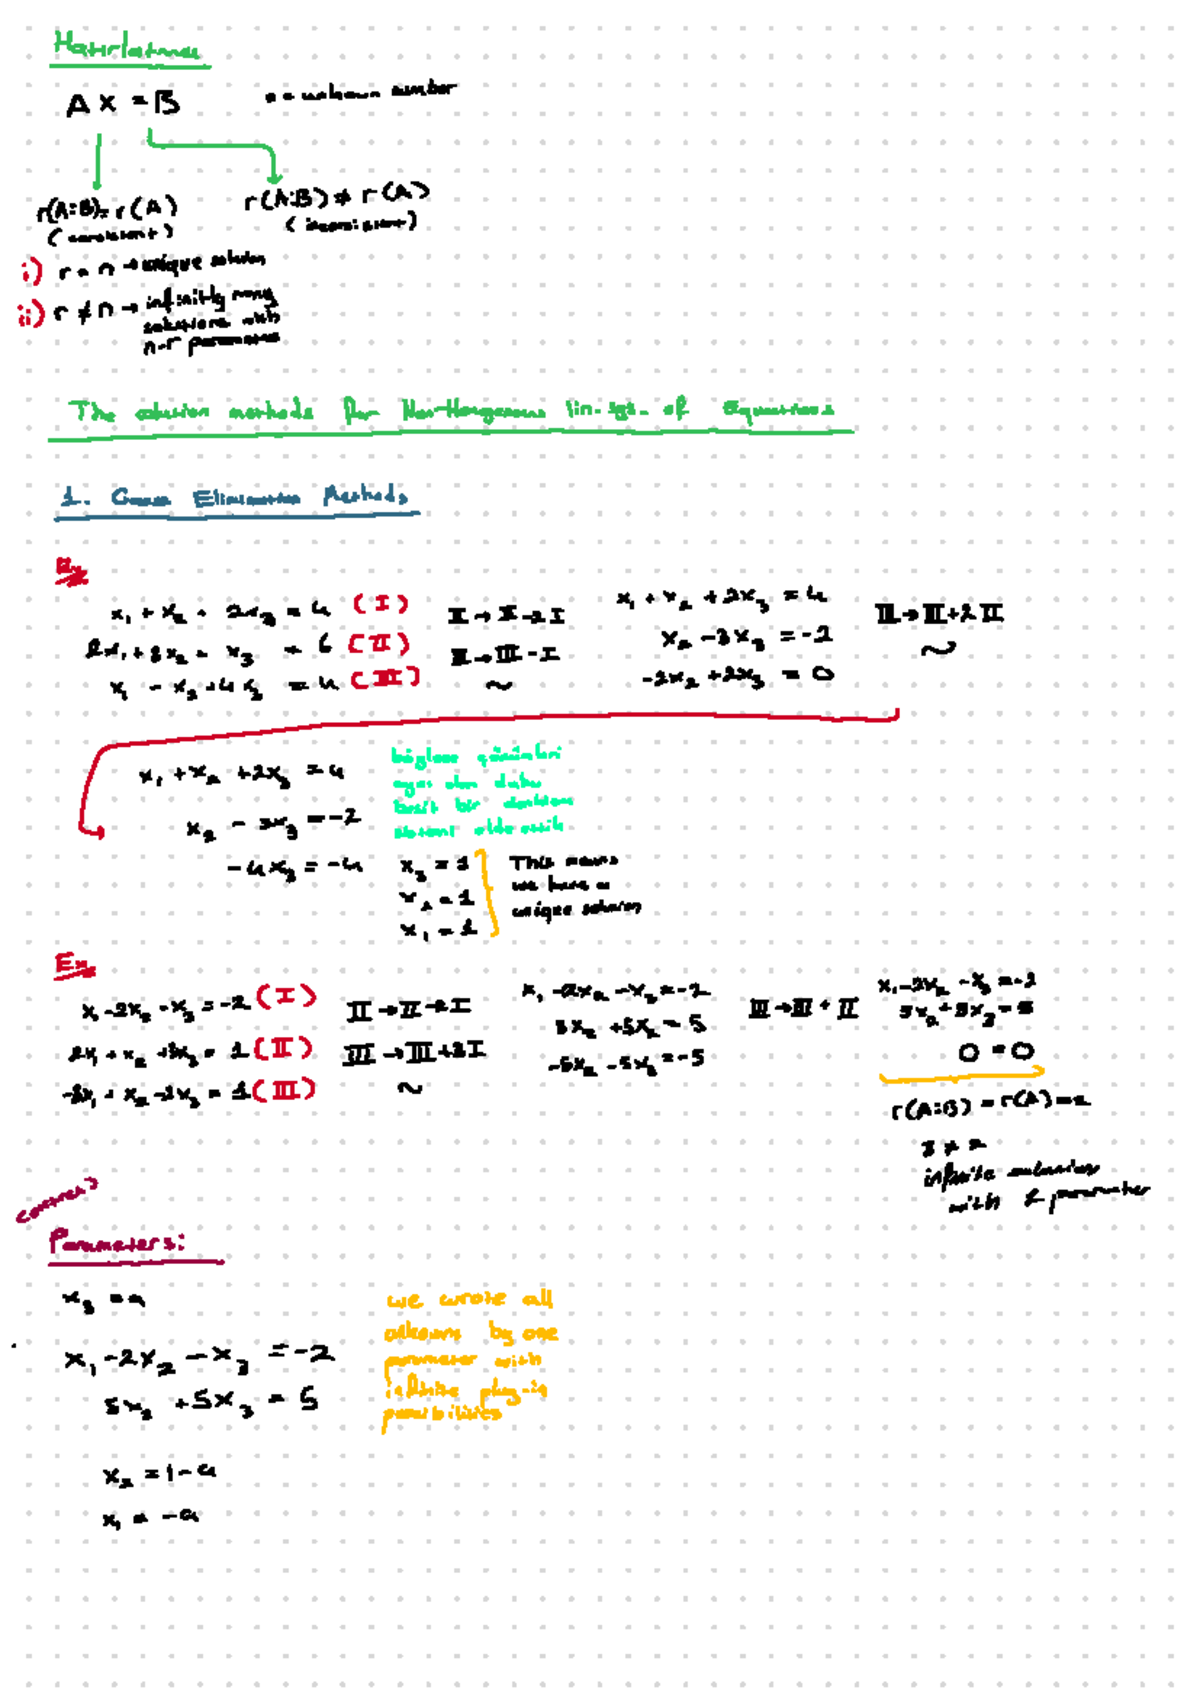 Hatırlatma
Ax = B
n = unknown number
r(A:B) = r(A)
(consistent)
r(A:B) ≠ r(A)
(inconsistent)
i) r = n → unique solution
ii) r ≠ n → infinitly many
solutions with
n-r parameter
The solution methods for Non-Homgenous lin. sys. of Equations
1. Gauss Elimination Methods
Ex
x₁ + x₂ + 2x₃ = 4 (I)
2x₁ + 3x₂ + x₃ = 6 (II)
x₁ - x₂ + 4x₃ = 4 (III)
II → II - 2I
III → III - I
~
x₁ + x₂ + 2x₃ = 4
x₂ - 3x₃ = -2
-2x₂ + 2x₃ = 0
III → III + 2II
~
x₁ + x₂ + 2x₃ = 4
x₂ - 3x₃ = -2
-4x₃ = -4
böylece çözümleri
aynı olan daha
basit bir denklem
sistemi elde ettik
x₃ = 1
x₂ = 1
x₁ = 1
This means
we have a
unique solution
Ex
x₁ - 2x₂ - x₃ = -2 (I)
2x₁ + x₂ + 3x₃ = 1 (II)
-3x₁ + x₂ - 2x₃ = 1 (III)
II → II - 2I
III → III + 3I
~
x₁ - 2x₂ - x₃ = -2
5x₂ + 5x₂ = 5
-5x₂ - 5x₃ = -5
III → III + II
x₁ - 2x₂ - x₃ = -2
5x₂ + 5x₃ = 5
0 = 0
r(A:B) = r(A) = 2
3 ≠ 2
infinite solution
with 1 parameter
Parameters:
x₃ = a
x₁ - 2x₂ - x₃ = -2
5x₂ + 5x₃ = 5
x₂ = 1 - a
x₁ = -a
we wrote all
unknowns by one
parameter with
infinite plug-in
possibilities